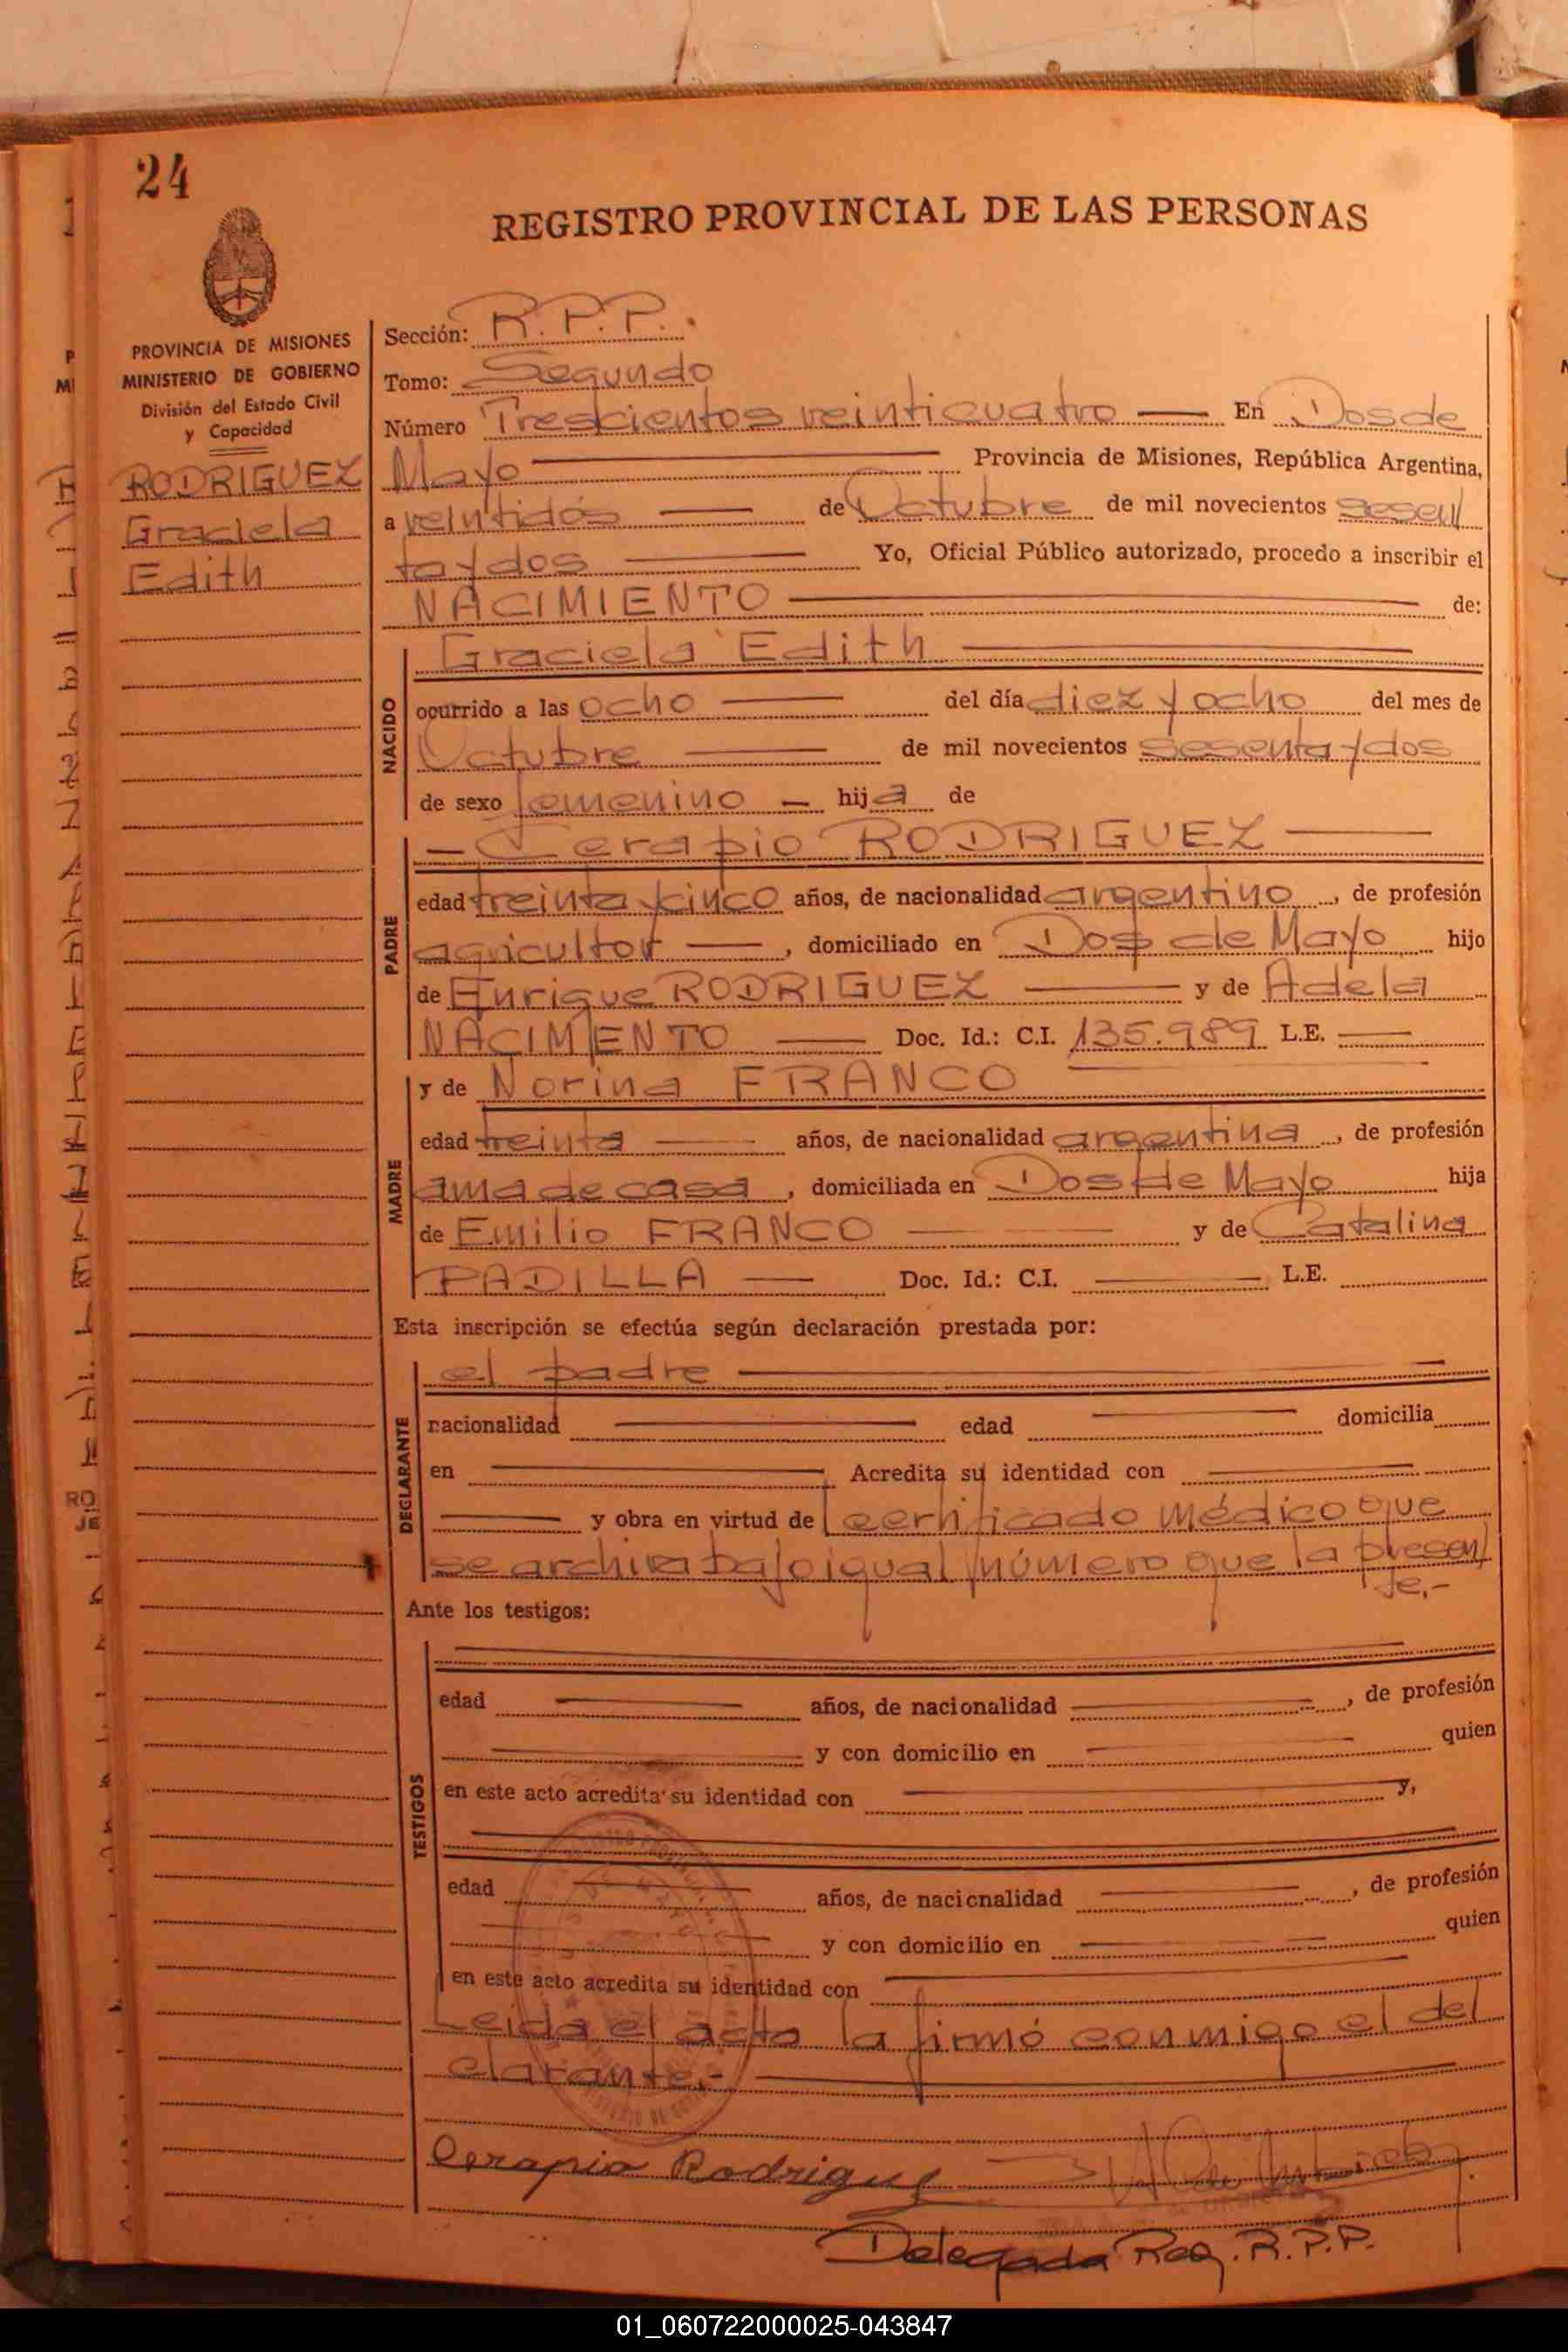 24
REGISTRO PROVINCIAL DE LAS PERSONAS
PROVINCIA DE MISIONES
MINISTERIO DE GOBIERNO
División del Estado Civil
y Capacidad
RODRIGUEZ
Graciela
Edith
Sección: R.P.P.
Tomo: Segundo
Número Trescientos veinticuatro En Dos de
Mayo Provincia de Misiones, República Argentina,
a veintidós de Octubre de mil novecientos sesen
ta y dos Yo, Oficial Público autorizado, procedo a inscribir el
NACIMIENTO de:
NACIDO
Graciela Edith
ocurrido a las ocho del día diez y ocho del mes de
Octubre de mil novecientos sesenta y dos
de sexo femenino hija de
PADRE
Cerapio RODRIGUEZ
edad treinta y cinco años, de nacionalidad argentino, de profesión
agricultor, domiciliado en Dos de Mayo hijo
de Enrique RODRIGUEZ y de Adela
NACIMIENTO Doc. Id.: C.I. 135.989 L.E.
MADRE
y de Norina FRANCO
edad treinta años, de nacionalidad argentina, de profesión
ama de casa, domiciliada en Dos de Mayo hija
de Emilio FRANCO y de Catalina
PADILLA Doc. Id.: C.I. L.E.
Esta inscripción se efectúa según declaración prestada por:
DECLARANTE
el padre
nacionalidad edad domicilia
en Acredita su identidad con
y obra en virtud de certificado médico que
se archiva bajo igual número que la presen
te.-
Ante los testigos:
TESTIGOS
edad años, de nacionalidad , de profesión
y con domicilio en quien
en este acto acredita su identidad con y,
edad años, de nacionalidad , de profesión
y con domicilio en quien
en este acto acredita su identidad con
Leida el acta la firmó conmigo el de
clarante.-
Cerapio Rodriguez
Delegada Reg. R.P.P.
01_060722000025-043847